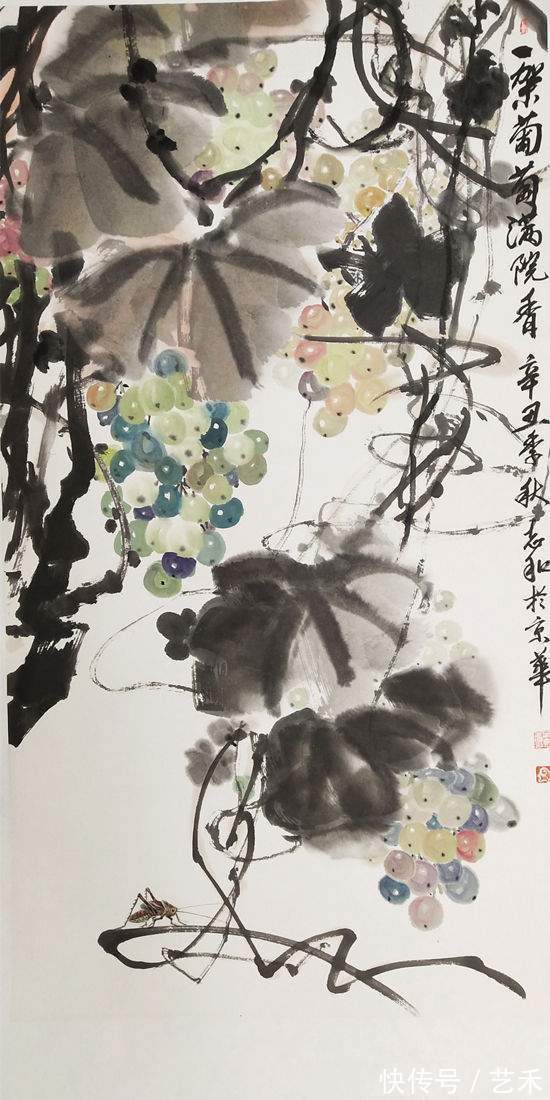 一架葡萄满院香 辛丑季秋志和於京华
快传号／艺禾